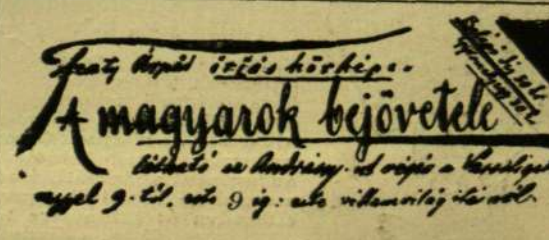 Feszty Árpád óriás körképe.
A magyarok bejövetele
látható az Andrássy-út végén a Városliget
reggel 9-től, este 9 ig: este villamvilágításnál.